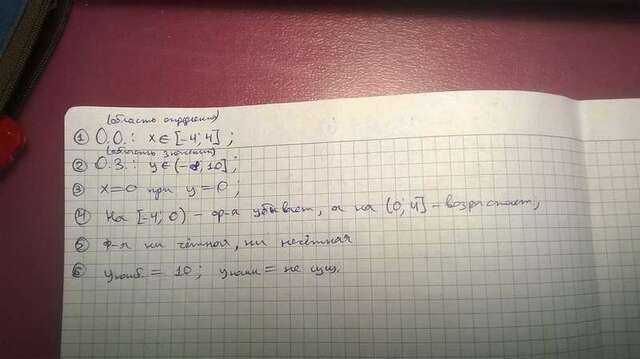 (область определения)
① О.О.: x ∈ [-4; 4] ;
(область значения)
② О.З.: y ∈ (-∞; 10];
③ x=0 при y=0 ;
④ На [-4; 0) - ф-я убывает, а на (0; 4] - возрастает;
⑤ Ф-я ни чётная, ни нечётная
⑥ yнаиб. = 10 ; yнаим = не сущ.